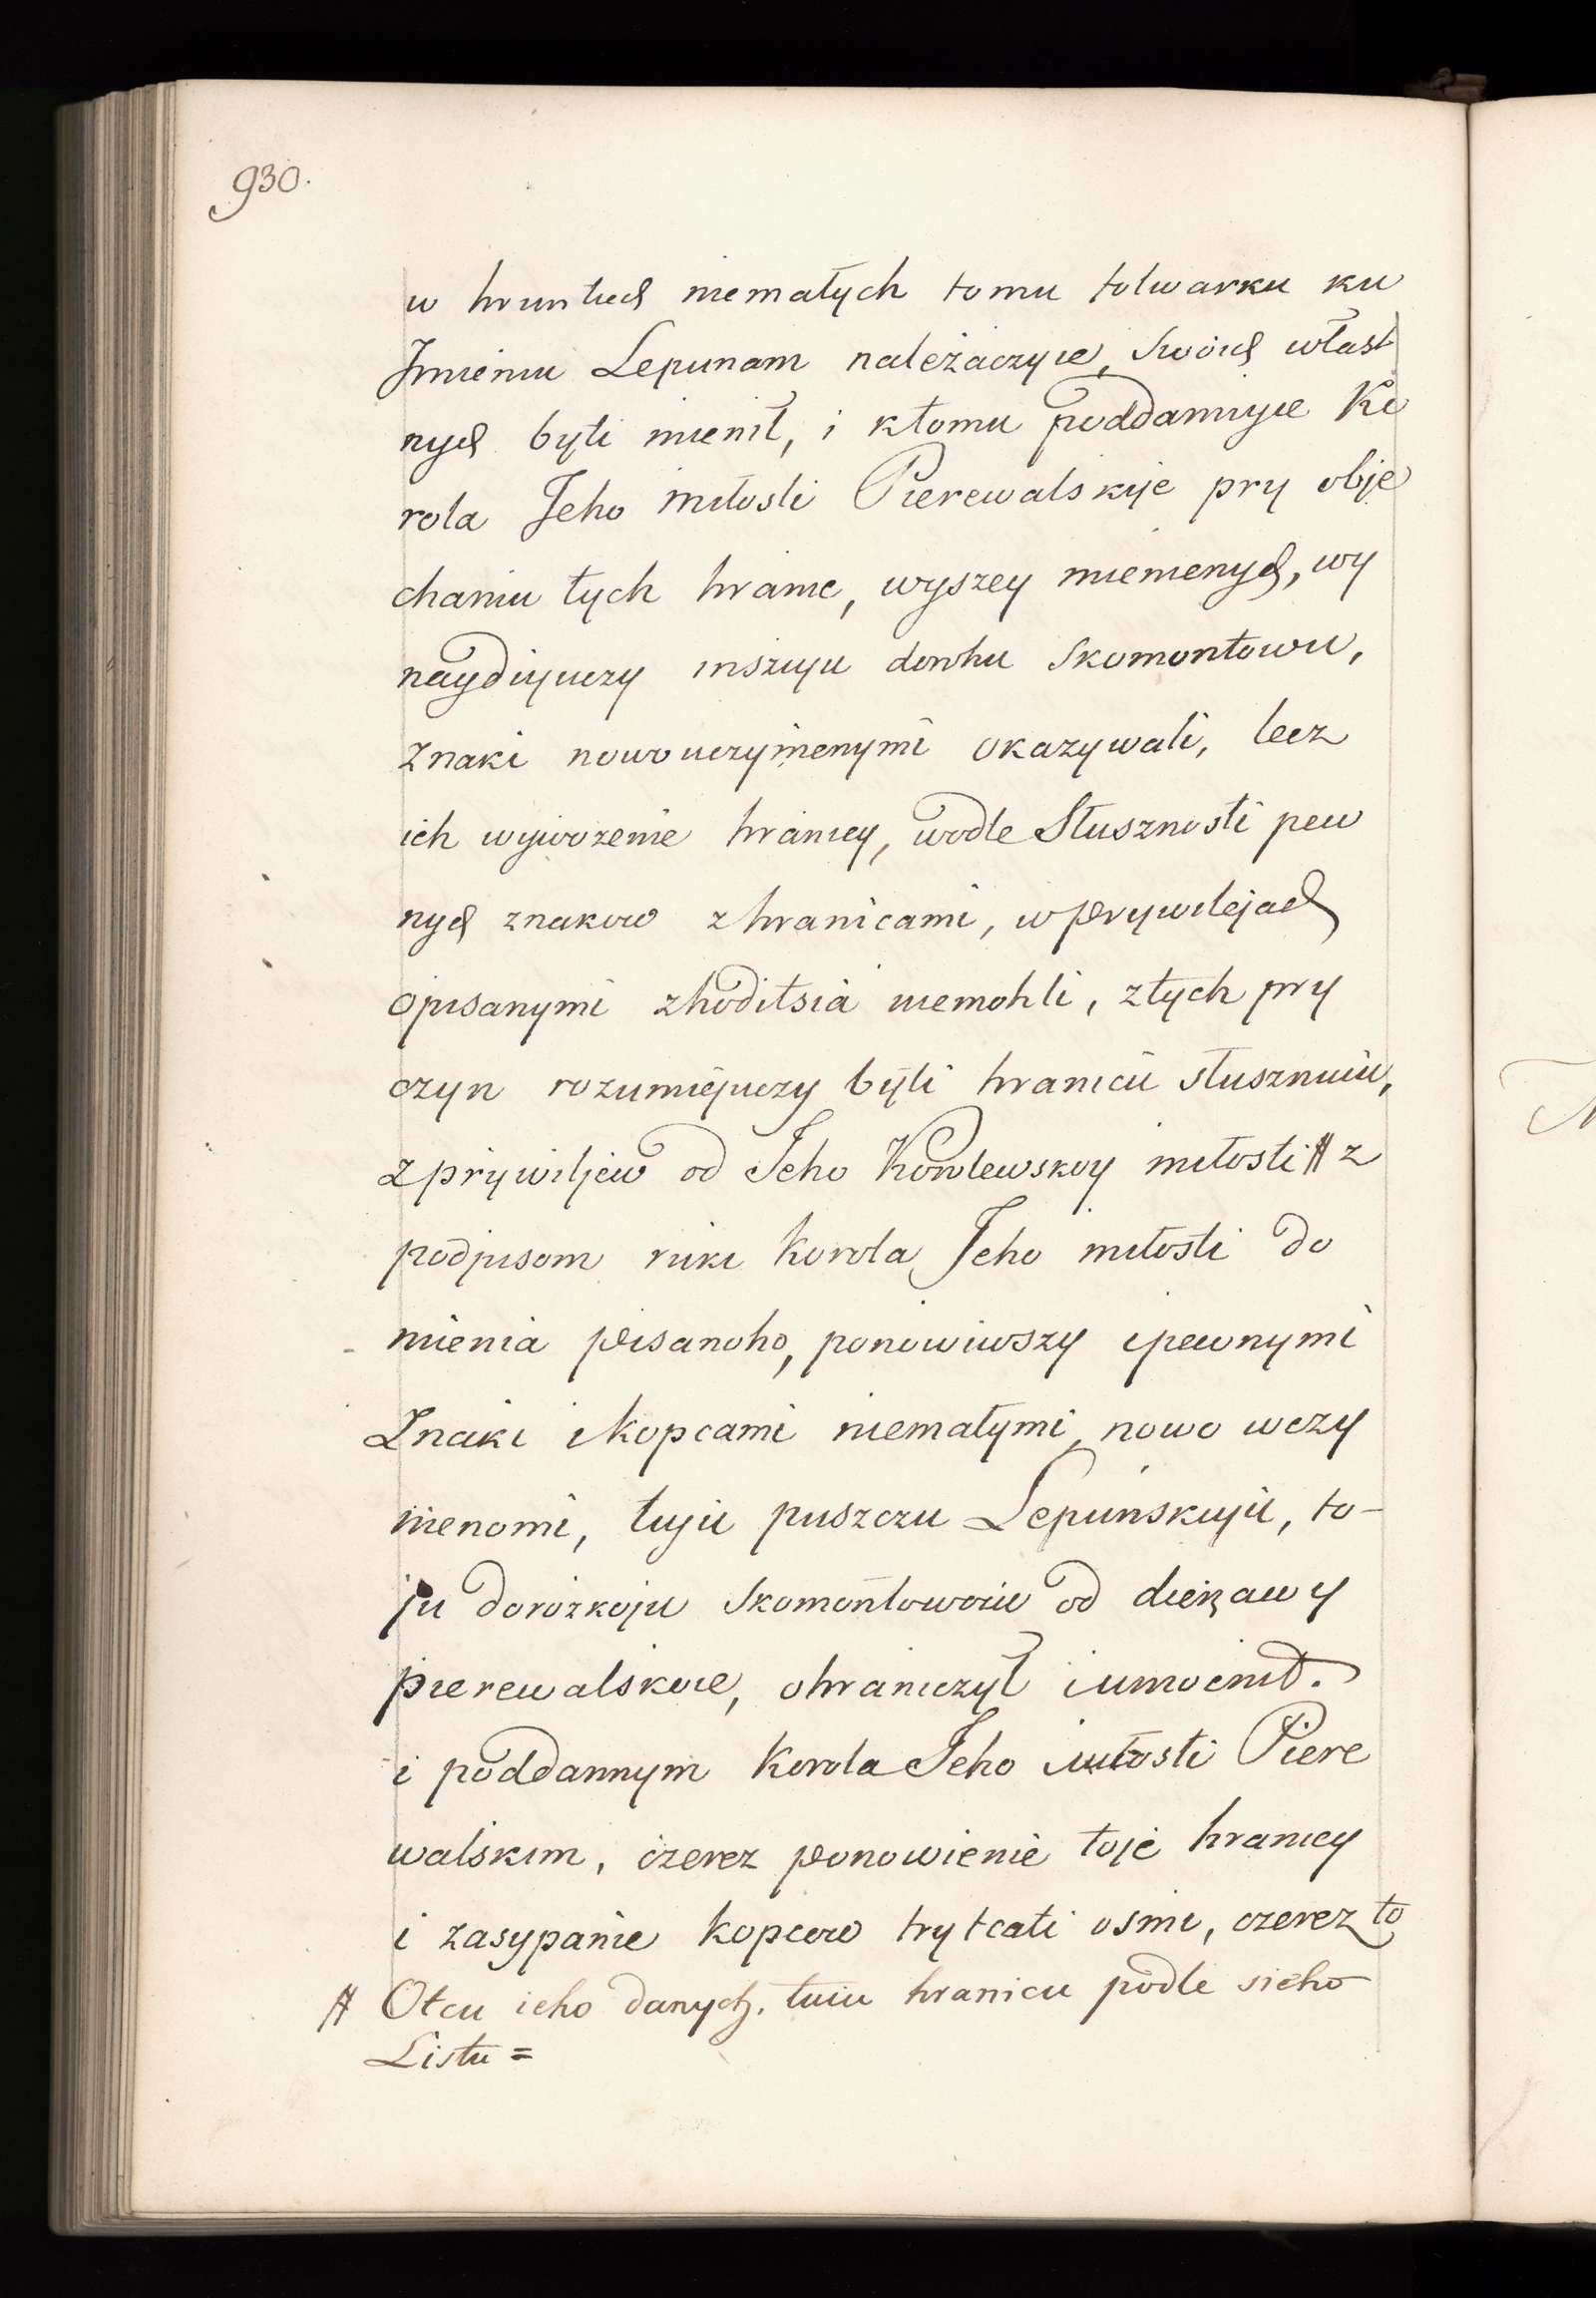 930.
w hruntech niemałych tomu folwarku ku
Jmieniu Lepunam należaczyie, swoich włast
nych byti mienił, i ktomu poddannyie Ko
rola Jeho miłosti Pierewalskije pry obje
chaniu tych hranic, wyszey mienienych, wy
naydiyuczy inszuju dorohu Skomontowu,
znaki nowouczynienymi okazywali, lecz
ich wywożenie hranicy, wodle Słusznosti pew
nych znakow zhranicami, wprywilejach
opisanymi zhoditsia niemohli, ztych pry
czyn rozumiejuczy byti hranicu słusznuiu,
zprywiljew od Jeho Korolewskoy miłosti # z
podpisom ruki Korola Jeho miłosti do
mienia pisanoho, ponowiwszy ipewnymi
Znaki ikopcami niemałymi nowo uczy
nienomi, tuju puszczu Lepunskuju, to-
ju dorożkoju Skomontowoiu od dierżawy
pierewalskoie, ohraniczył iumocnił.
i poddannym Korola Jeho miłosti Piere
walskim, czerez ponowienie toje hranicy
i zasypanie kopcow trytcati osmi, czerez to
# Otcu ieho danych. tuiu hranicu podle sieho
Listu =